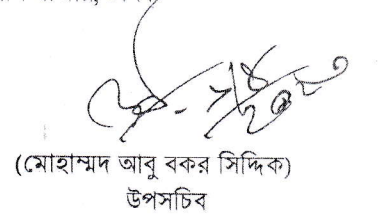 (মোহাম্মদ আবু বকর সিদ্দিক)
উপসচিব